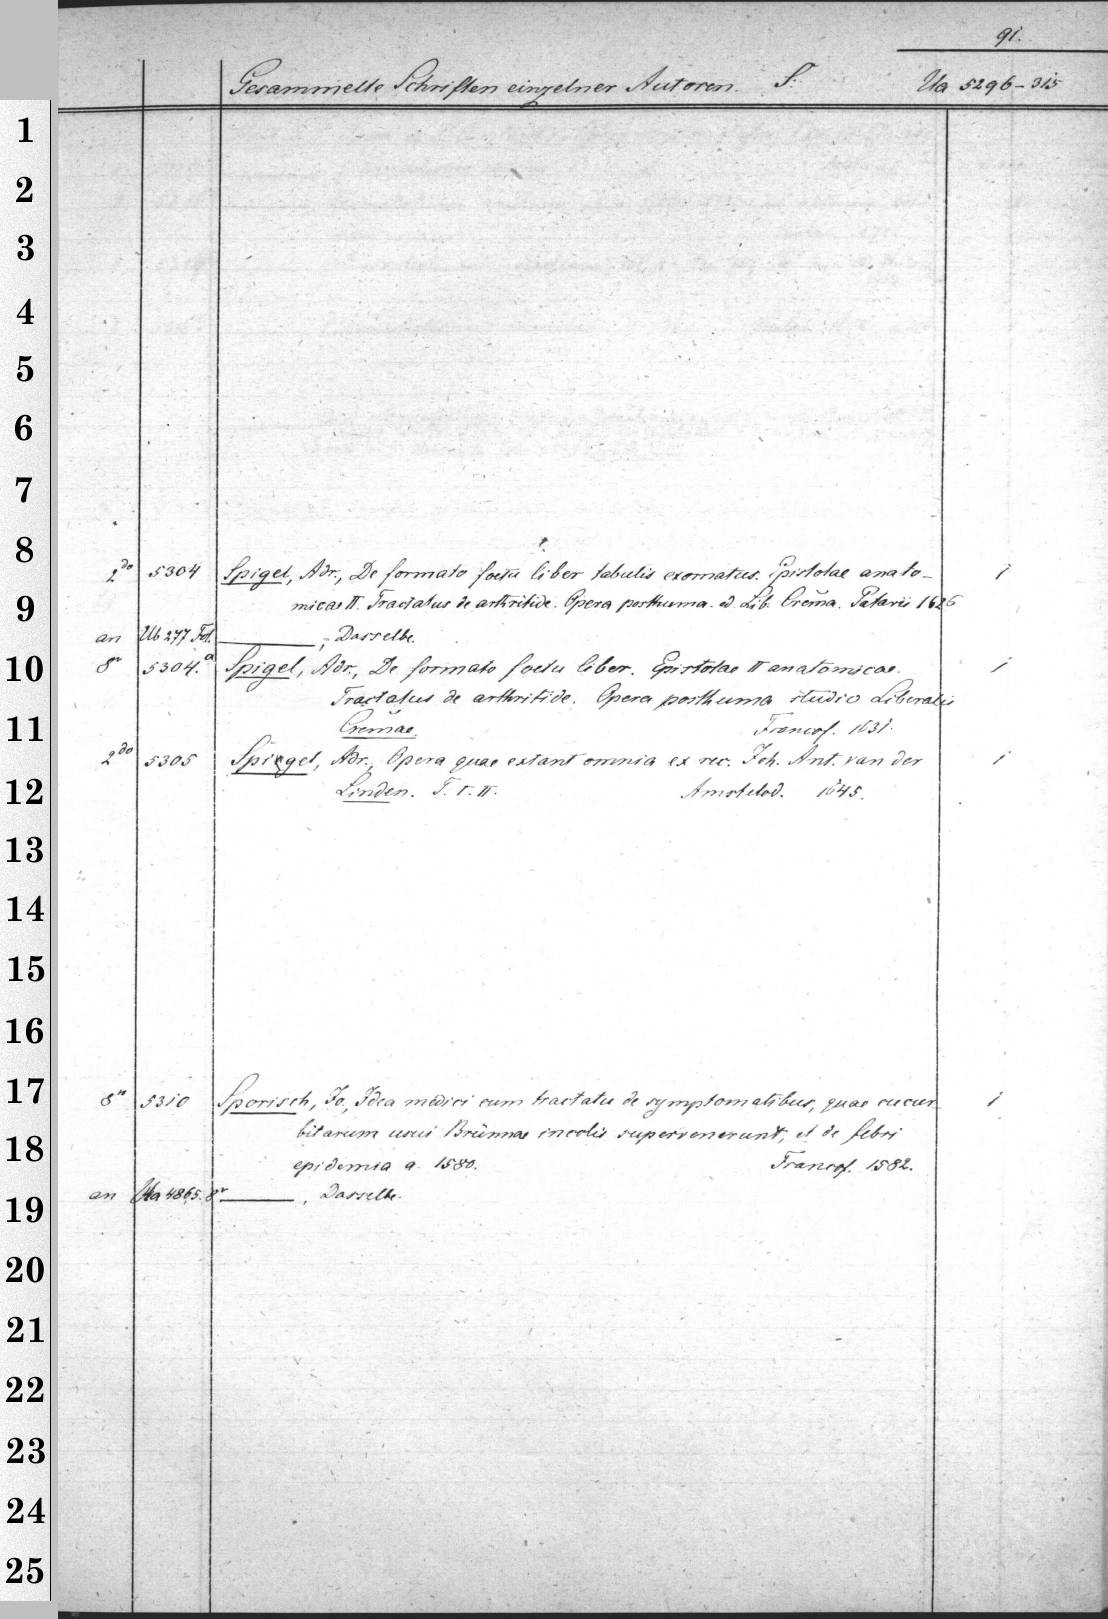 91.
Gesammelte Schriften einzelner Autoren. S. Ua 5296-315
1
2
3
4
5
6
7
8
2do 5304 Spigel, Adr., De formato foetu liber tabulis exornatus. Epistolae anato- 1
9
micae II. Tractatus de arthritide. Opera posthuma. ed Lib. Crem̄a. Patavii 1626
an Ub 277 Fol. ———, Dasselbe.
10
8o 5304.a Spigel, Adr., De formato foetu liber. Epistolae II anatomicae. 1
Tractatus de arthritide. Opera posthuma studio Liberalis
11
Crem̄ae. Francof. 1631.
2do 5305 Spiegel, Adr., Opera quae extant omnia ex rec. Joh. Ant. van der 1
12
Linden. T. I. II. Amstelod. 1645.
13
14
15
16
17
8o 5310 Sporisch, Jo., Idea medici cum tractatu de symptomatibus, quae cucur- 1
bitarum usui Brünnae incolis supervenerunt, et de febri
18
epidemia a. 1580. Francof. 1582.
an Ua 4865. 8o ———, Dasselbe.
19
20
21
22
23
24
25